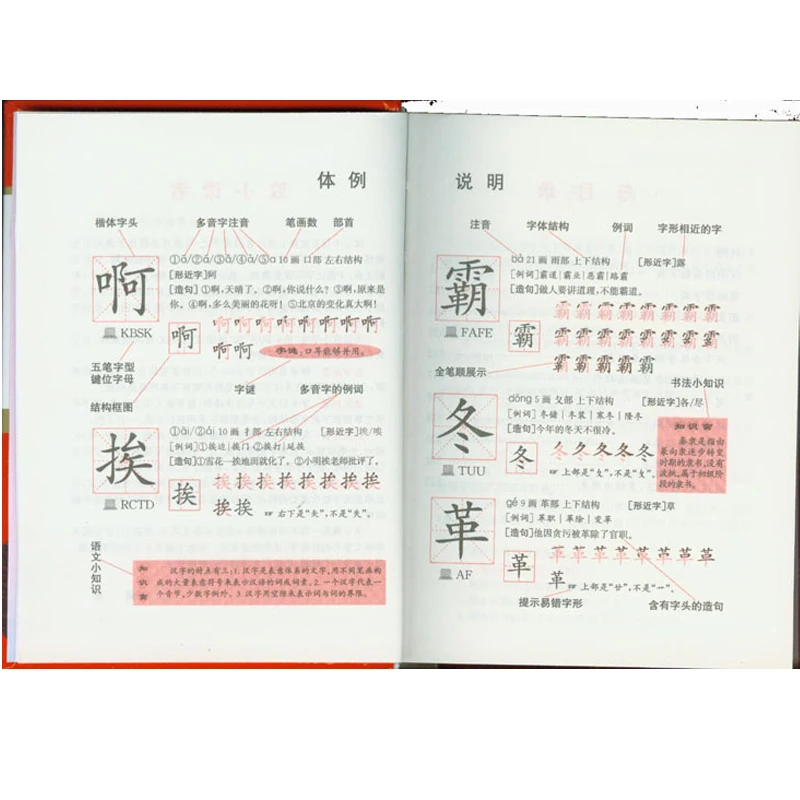 体例
楷体字头 多音字注音 笔画数 部首
啊
KBSK
①ā/②á/③ǎ/④à/⑤a 10画 口部 左右结构
[形近字]阿
[造句]①啊,天晴了。②啊,你说什么?③啊,原来是
你。④啊,多么美丽的花呀!⑤北京的变化真大啊!
啊 啊啊啊啊啊啊啊啊
啊啊 字谜:口耳能够并用。
五笔字型
键位字母
字谜 多音字的例词
结构框图
挨
RCTD
①āi/②ái 10画 扌部 左右结构 [形近字]埃/唉
[例词]①挨边|挨门·②挨打|延挨
[造句]①雪花一挨地面就化了。②小明挨老师批评了。
挨 挨挨挨挨挨挨挨挨
挨挨 ☞右下是“矢”,不是“失”。
语文小知识
知识窗
汉字的特点有三:1.汉字是表意体系的文字,用不同笔画构
成的大量表意符号来表示汉语的词或词素。2.一个汉字代表一
个音节,少数字例外。3.汉字用空隙来表示词与词的界限。
说明
注音 字体结构 例词 字形相近的字
霸
FAFE
bà 21画 雨部 上下结构 [形近字]露
[例词]霸道|霸业|恶霸|路霸
[造句]做人要讲道理,不能霸道。
霸 霸霸霸霸霸霸霸霸
霸霸霸霸霸霸霸霸
霸霸霸霸霸
全笔顺展示
书法小知识
冬
TUU
dōng 5画 夂部 上下结构 [形近字]各/尽
[例词]冬储|冬装|寒冬|隆冬
[造句]今年的冬天不很冷。
冬 冬冬冬冬冬
☞上部是“夂”,不是“攵”。
知识窗
秦隶是指由
篆向隶逐步转变
时期的隶书,没有
波挑,属于初级阶
段的隶书。
革
AF
gé 9画 革部 上下结构 [形近字]草
[例词]革职|革除|变革
[造句]他因贪污被革除了官职。
革 革革革革革革革革
革 ☞上部是“廿”,不是“艹”。
提示易错字形 含有字头的造句